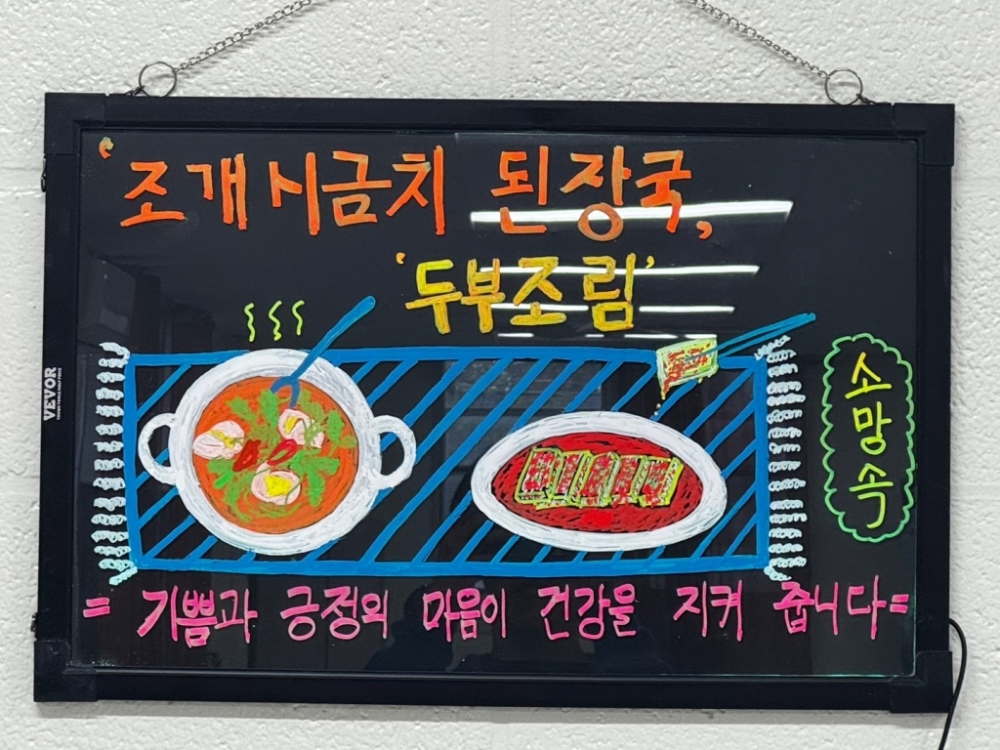 '조개시금치 된장국,
'두부조림'
소망속
= 기쁨과 긍정의 마음이 건강을 지켜 줍니다=
VEVOR